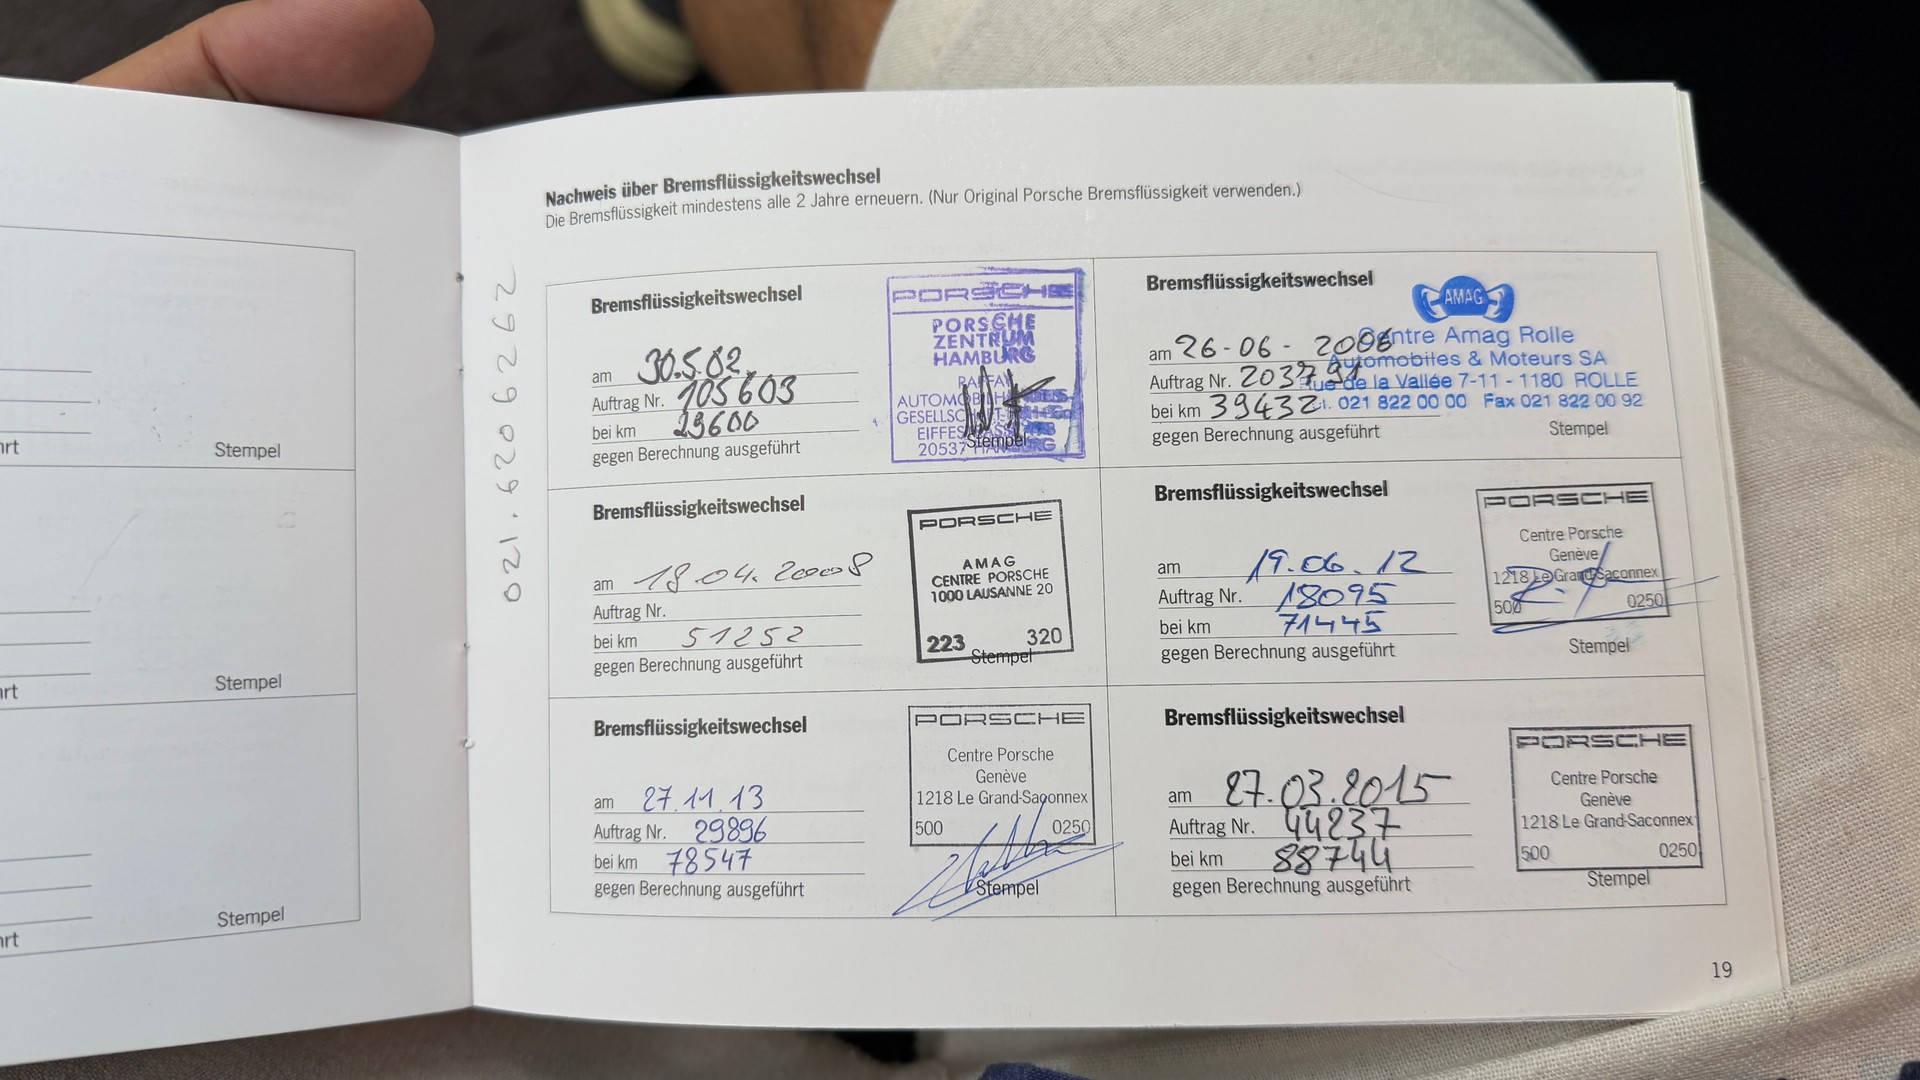 rt
Stempel
rt
Stempel
rt
Stempel
021.6206262
Nachweis über Bremsflüssigkeitswechsel
Die Bremsflüssigkeit mindestens alle 2 Jahre erneuern. (Nur Original Porsche Bremsflüssigkeit verwenden.)
Bremsflüssigkeitswechsel
am 30.5.02.
Auftrag Nr. 105603
bei km 29600
gegen Berechnung ausgeführt
PORSCHE
PORSCHE
ZENTRUM
HAMBURG
RAFFAY
20537 HAMBURG
Stempel
Bremsflüssigkeitswechsel
am 26-06-2006
Auftrag Nr. 203791
bei km 39432
gegen Berechnung ausgeführt
AMAG
Centre Amag Rolle
Automobiles & Moteurs SA
Rue de la Vallée 7-11 - 1180 ROLLE
Tél. 021 822 00 00 Fax 021 822 00 92
Stempel
Bremsflüssigkeitswechsel
am 18.04.2008
Auftrag Nr.
bei km 51252
gegen Berechnung ausgeführt
PORSCHE
AMAG
CENTRE PORSCHE
1000 LAUSANNE 20
223 320
Stempel
Bremsflüssigkeitswechsel
am 19.06.12
Auftrag Nr. 18095
bei km 71445
gegen Berechnung ausgeführt
PORSCHE
Centre Porsche
Genève
1218 Le Grand-Saconnex
500 0250
Stempel
Bremsflüssigkeitswechsel
am 27.11.13
Auftrag Nr. 29896
bei km 78547
gegen Berechnung ausgeführt
PORSCHE
Centre Porsche
Genève
1218 Le Grand-Saconnex
500 0250
Stempel
Bremsflüssigkeitswechsel
am 27.03.2015
Auftrag Nr. 44237
bei km 88744
gegen Berechnung ausgeführt
PORSCHE
Centre Porsche
Genève
1218 Le Grand-Saconnex
500 0250
Stempel
19